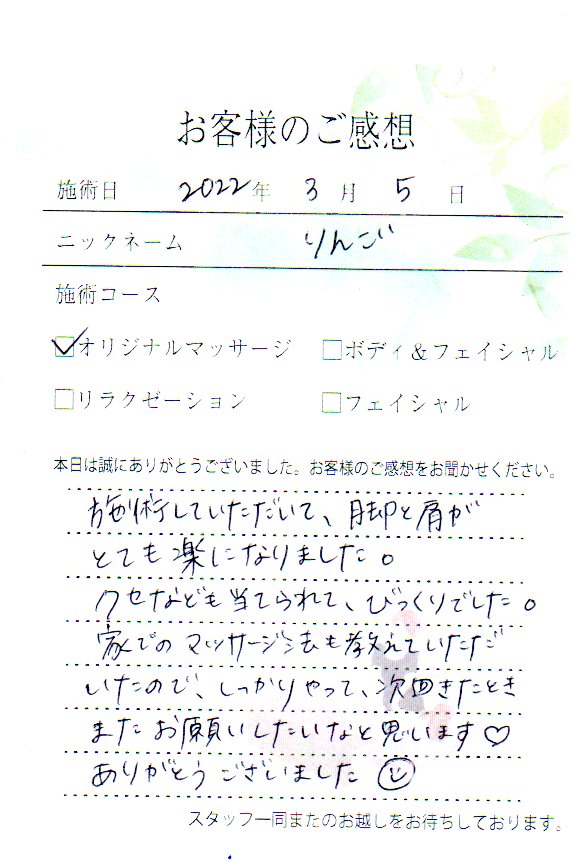 お客様のご感想
施術日 2022年 3月 5日
ニックネーム りんご
施術コース
☑オリジナルマッサージ □ボディ&フェイシャル
□リラクゼーション □フェイシャル
本日は誠にありがとうございました。お客様のご感想をお聞かせください。
施術していただいて、脚と肩が
とても楽になりました。
クセなども当てられて、びっくりでした。
家でのマッサージ法も教えていただ
いたので、しっかりやって、次回きたとき
またお願いしたいなと思います♡
ありがとうございました☺
スタッフ一同またのお越しをお待ちしております。